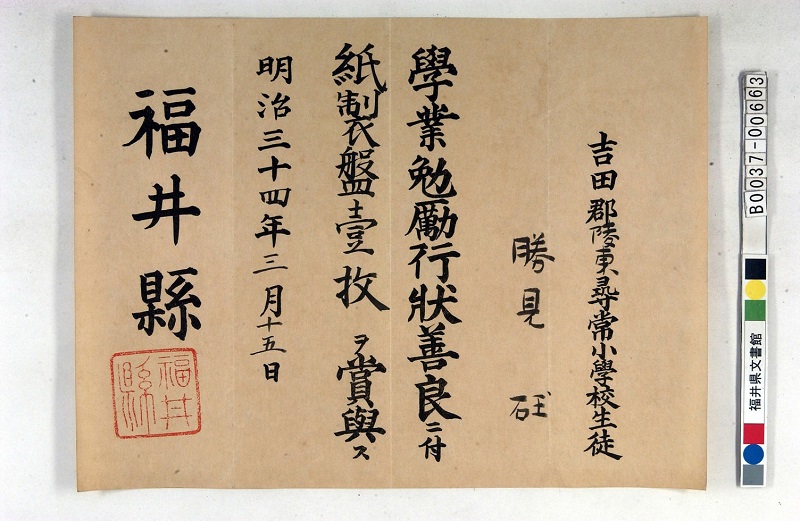 吉田郡陵東尋常小學校生徒
勝見 砡
學業勉勵行狀善良ニ付
紙製衣盤壹枚ヲ賞與ス
明治三十四年三月十五日
福井縣
福井縣
B0037-00663
福井県文書館